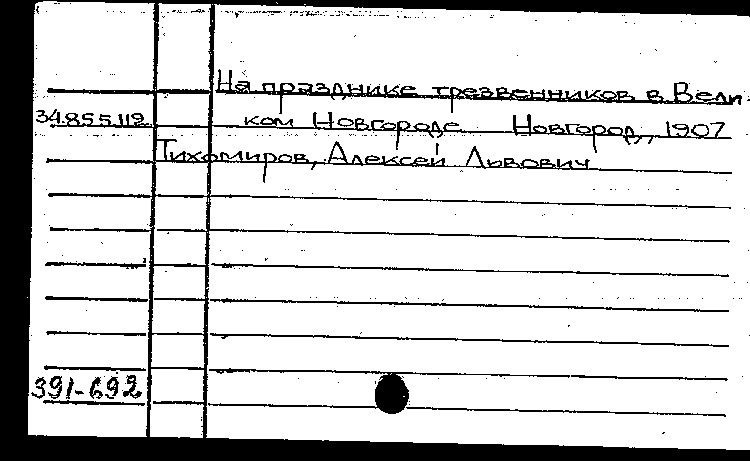 На празднике трезвенников в Вели-
34.855.119 ком Новгороде Новгород, 1907
Тихомиров, Алексей Львович
391-692